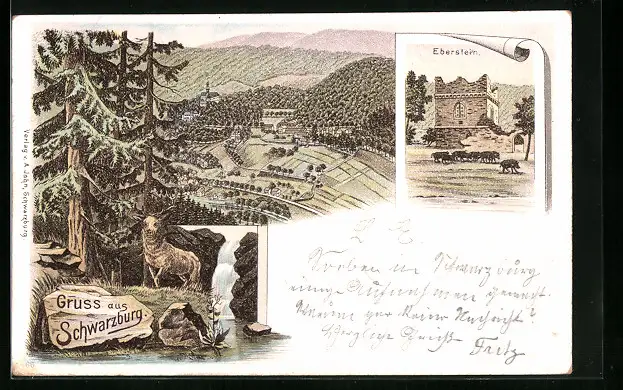 Eberstein.
Verlag v. A. Jahn, Schwarzburg.
Gruss aus
Schwarzburg.
L. E.
Soeben in Schwarzburg
einige Aufnahmen gemacht.
Warum gar keine Nachricht?
Herzliche Grüße
Fritz